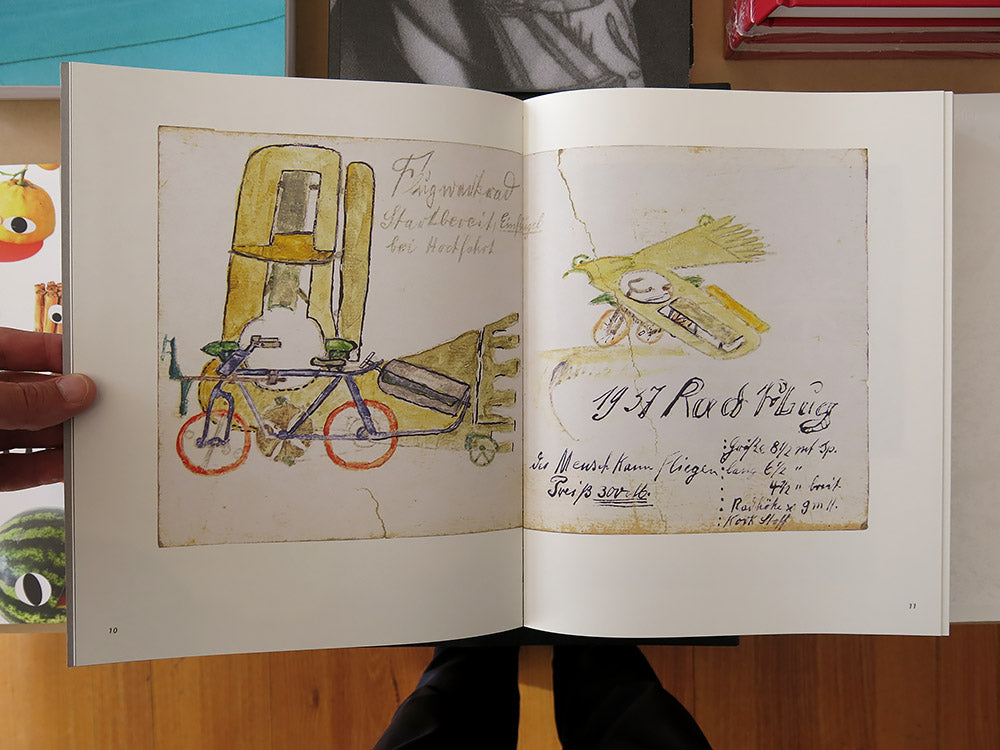 Flugwerkrad
Startbereit, Einflügel
bei Hochfahrt
1937 Rad Flug
der Mensch kann fliegen
Preiß 300 M.
: Größe 8 1/2 mt Sp.
: lang 6 1/2 "
: 4 1/2 " breit
: Radhöhe
: Kork Stoff
10
11